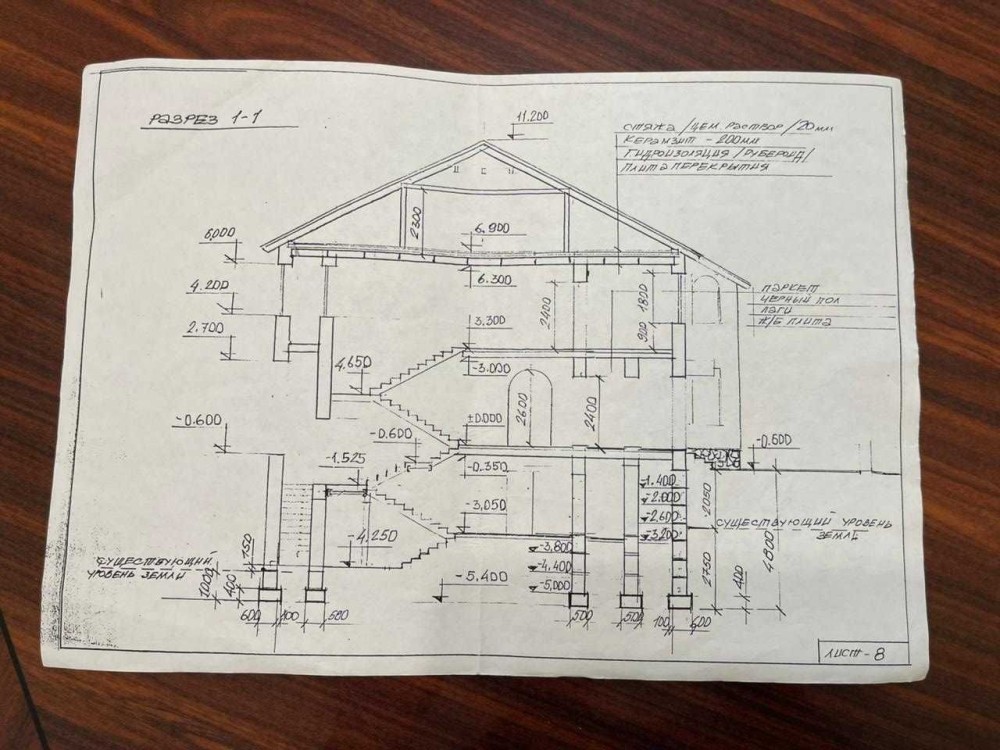 РАЗРЕЗ 1-1
11.200
СТЯЖА /ЦЕМ. РАСТВОР/20мм
КЕРАМЗИТ - 200мм
ГИДРОИЗОЛЯЦИЯ /РУБЕРОИД/
ПЛИТА ПЕРЕКРЫТИЯ
2300
6.900
6,000
6.300
4.200
2.700
2400
1800
900
ПАРКЕТ
ЧЕРНЫЙ ПОЛ
ЛАГИ
Ж/Б ПЛИТА
3.300
-3.000
4.650
2600
2400
-0.600
±0.000
-0.600
-0.350
-0.600
-1.525
-1.400
-2.000
-2.600
-3.200
2050
-3,050
-4.250
СУЩЕСТВУЮЩИЙ УРОВЕНЬ
ЗЕМЛИ
4800
-3,800
-4,400
-5,000
2750
400
СУЩЕСТВУЮЩИЙ
УРОВЕНЬ ЗЕМЛИ
750
1000
400
-5.400
600
100
500
500
500
100
600
ЛИСТ-8